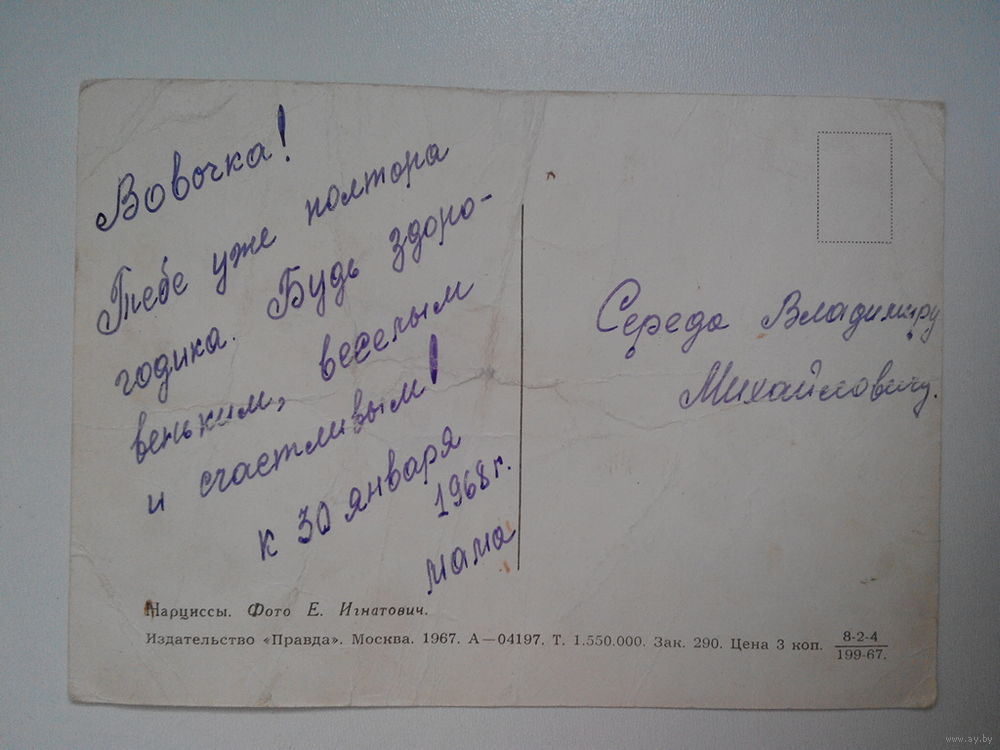 Вовочка!
Тебе уже полтора
годика. Будь здоро-
веньким, веселым
и счастливым!
к 30 января
1968 г.
мама
Середа Владимиру
Михайловичу.
Нарциссы. Фото Е. Игнатович.
Издательство «Правда». Москва. 1967. А—04197. Т. 1.550.000. Зак. 290. Цена 3 коп.
8-2-4
199-67.
www.ay.by